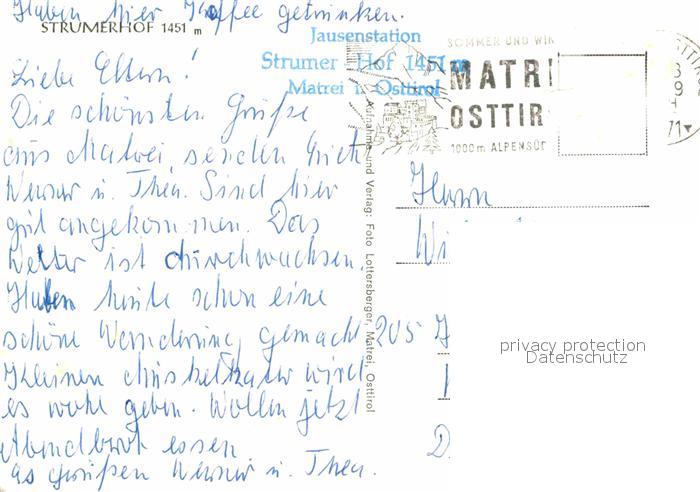 Haben hier Kaffee getrunken.
STRUMERHOF 1451 m
Jausenstation
Strumer Hof 1451 m
Matrei i. Osttirol
SOMMER UND WIN
MATRI
OSTTIR
1000m ALPENSÜ
71
Liebe Eltern!
Die schönsten Grüße
aus Matrei senden Euch
Werner u. Thea. Sind hier
gut angekommen. Das
Wetter ist durchwachsen.
Haben heute schon eine
schöne Wanderung gemacht
Kleinen Muskelkater wird
es wohl geben. Wollen jetzt
Abendbrot essen
es grüßen Werner u. Thea.
Aufnahme und Verlag: Foto Lottersberger, Matrei, Osttirol
Herrn
Wi
205
D
privacy protection
Datenschutz